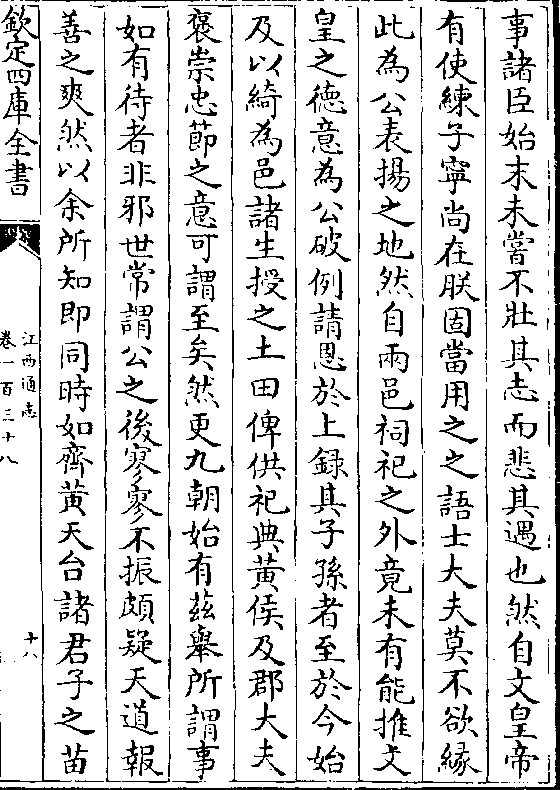 事諸臣始末未嘗不壯其志而悲其遇也然自文皇帝
有使練子寧尚在朕固當用之之語士大夫莫不欲緣
此為公表揚之地然自兩邑祠祀之外竟未有能推文
皇之德意為公破例請恩於上錄其子孫者至於今始
及以綺為邑諸生授之土田俾供祀典黃侯及郡大夫
褒崇忠節之意可謂至矣然更九朝始有茲舉所謂事
如有待者非邪世常謂公之後寥寥不振頗疑天道報
善之爽然以余所知即同時如齊黃天台諸君子之苗
欽定四庫全書
江西通志
卷一百三十八
十八